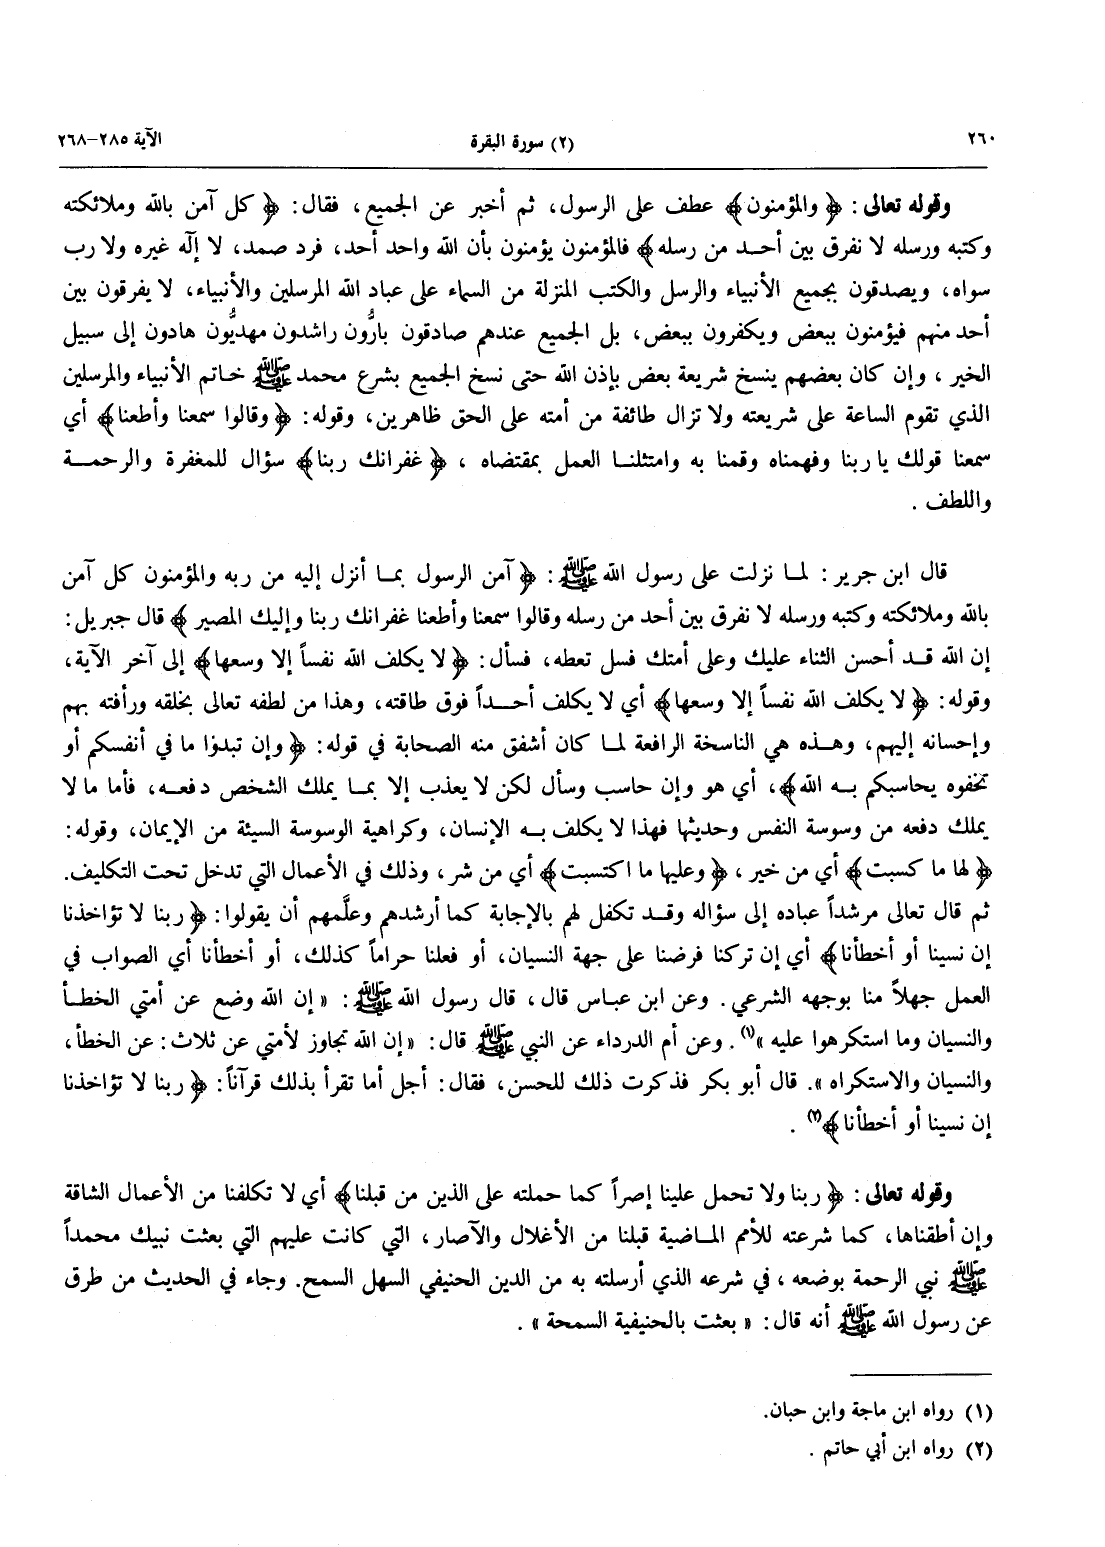 ٢٦٠ (٢) سورة البقرة الآية ٢٨٥-٢٦٨
وقوله تعالى : ﴿ والمؤمنون﴾ عطف على الرسول، ثم أخبر عن الجميع، فقال: ﴿ كل آمن بالله وملائكته
وكتبه ورسله لا نفرق بين أحد من رسله﴾ فالمؤمنون يؤمنون بأن الله واحد أحد، فرد صمد، لا إلٓه غيره ولا رب
سواه، ويصدقون بجميع الأنبياء والرسل والكتب المنزلة من السماء على عباد الله المرسلين والأنبياء، لا يفرقون بين
أحد منهم فيؤمنون ببعض ويكفرون ببعض، بل الجميع عندهم صادقون بارُّون راشدون مهديُّون هادون إلى سبيل
الخير ، وإن كان بعضهم ينسخ شريعة بعض بإذن الله حتى نسخ الجميع بشرع محمد ﷺ خاتم الأنبياء والمرسلين
الذي تقوم الساعة على شريعته ولا تزال طائفة من أمته على الحق ظاهرين، وقوله: ﴿ وقالوا سمعنا وأطعنا﴾ أي
سمعنا قولك يا ربنا وفهمناه وقمنا به وامتثلنا العمل بمقتضاه ، ﴿ غفرانك ربنا﴾ سؤال للمغفرة والرحمة
واللطف .
قال ابن جرير : لما نزلت على رسول الله ﷺ : ﴿ آمن الرسول بما أنزل إليه من ربه والمؤمنون كل آمن
بالله وملائكته وكتبه ورسله لا نفرق بين أحد من رسله وقالوا سمعنا وأطعنا غفرانك ربنا وإليك المصير ﴾ قال جبريل:
إن الله قد أحسن الثناء عليك وعلى أمتك فسل تعطه، فسأل: ﴿ لا يكلف الله نفساً إلا وسعها﴾ إلى آخر الآية،
وقوله: ﴿ لا يكلف الله نفساً إلا وسعها﴾ أي لا يكلف أحداً فوق طاقته، وهذا من لطفه تعالى بخلقه ورأفته بهم
وإحسانه إليهم، وهذه هي الناسخة الرافعة لما كان أشفق منه الصحابة في قوله: ﴿ وإن تبدوا ما في أنفسكم أو
تخفوه يحاسبكم به الله﴾، أي هو وإن حاسب وسأل لكن لا يعذب إلا بما يملك الشخص دفعه، فأما ما لا
يملك دفعه من وسوسة النفس وحديثها فهذا لا يكلف به الإنسان، وكراهية الوسوسة السيئة من الإيمان، وقوله:
﴿ لها ما كسبت﴾ أي من خير ، ﴿ وعليها ما اكتسبت﴾ أي من شر ، وذلك في الأعمال التي تدخل تحت التكليف.
ثم قال تعالى مرشداً عباده إلى سؤاله وقد تكفل لهم بالإجابة كما أرشدهم وعلَّمهم أن يقولوا: ﴿ ربنا لا تؤاخذنا
إن نسينا أو أخطأنا﴾ أي إن تركنا فرضنا على جهة النسيان، أو فعلنا حراماً كذلك، أو أخطأنا أي الصواب في
العمل جهلاً منا بوجهه الشرعي. وعن ابن عباس قال، قال رسول الله ﷺ : « إن الله وضع عن أمتي الخطأ
والنسيان وما استكرهوا عليه »(١). وعن أم الدرداء عن النبي ﷺ قال: «إن الله تجاوز لأمتي عن ثلاث: عن الخطأ،
والنسيان والاستكراه ». قال أبو بكر فذكرت ذلك للحسن، فقال: أجل أما تقرأ بذلك قرآناً: ﴿ ربنا لا تؤاخذنا
إن نسينا أو أخطأنا﴾(٢) .
وقوله تعالى : ﴿ ربنا ولا تحمل علينا إصراً كما حملته على الذين من قبلنا﴾ أي لا تكلفنا من الأعمال الشاقة
وإن أطقناها، كما شرعته للأمم الماضية قبلنا من الأغلال والآصار، التي كانت عليهم التي بعثت نبيك محمداً
ﷺ نبي الرحمة بوضعه ، في شرعه الذي أرسلته به من الدين الحنيفي السهل السمح. وجاء في الحديث من طرق
عن رسول الله ﷺ أنه قال: « بعثت بالحنيفية السمحة » .
(١) رواه ابن ماجة وابن حبان.
(٢) رواه ابن أبي حاتم .